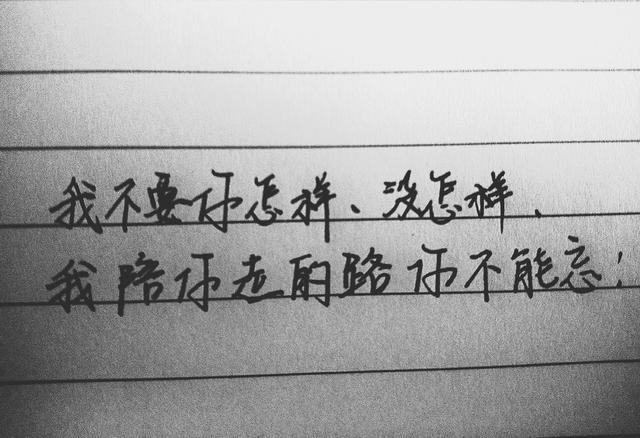 我不要你怎样、没怎样、
我陪你走的路你不能忘!